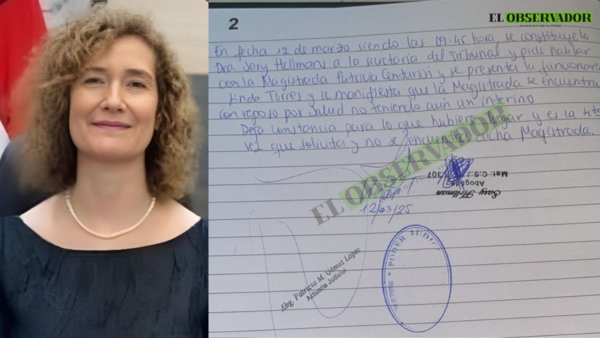 EL OBSERVADOR
2
En fecha 12 de marzo siendo las 09:45 hora, se constituye la
Dra Sary Hellmans a la secretaria del Tribunal y pide hablar
con la Magistrada Patricia y se presenta la funcionaria
Linda Torres y le manifiesta que la Magistrada se encuentra
con reposo por Salud no teniendo aún un interino
Deja constancia para lo que hubiere lugar y es la
vez que solicita y no se encuentra dicha Magistrada.
EL OBSERVADOR
Abogada
Mat. C.S.J. 307
12/03/25
Abg. Patricia M. Gómez Lopez
Actuaria Judicial
PODER